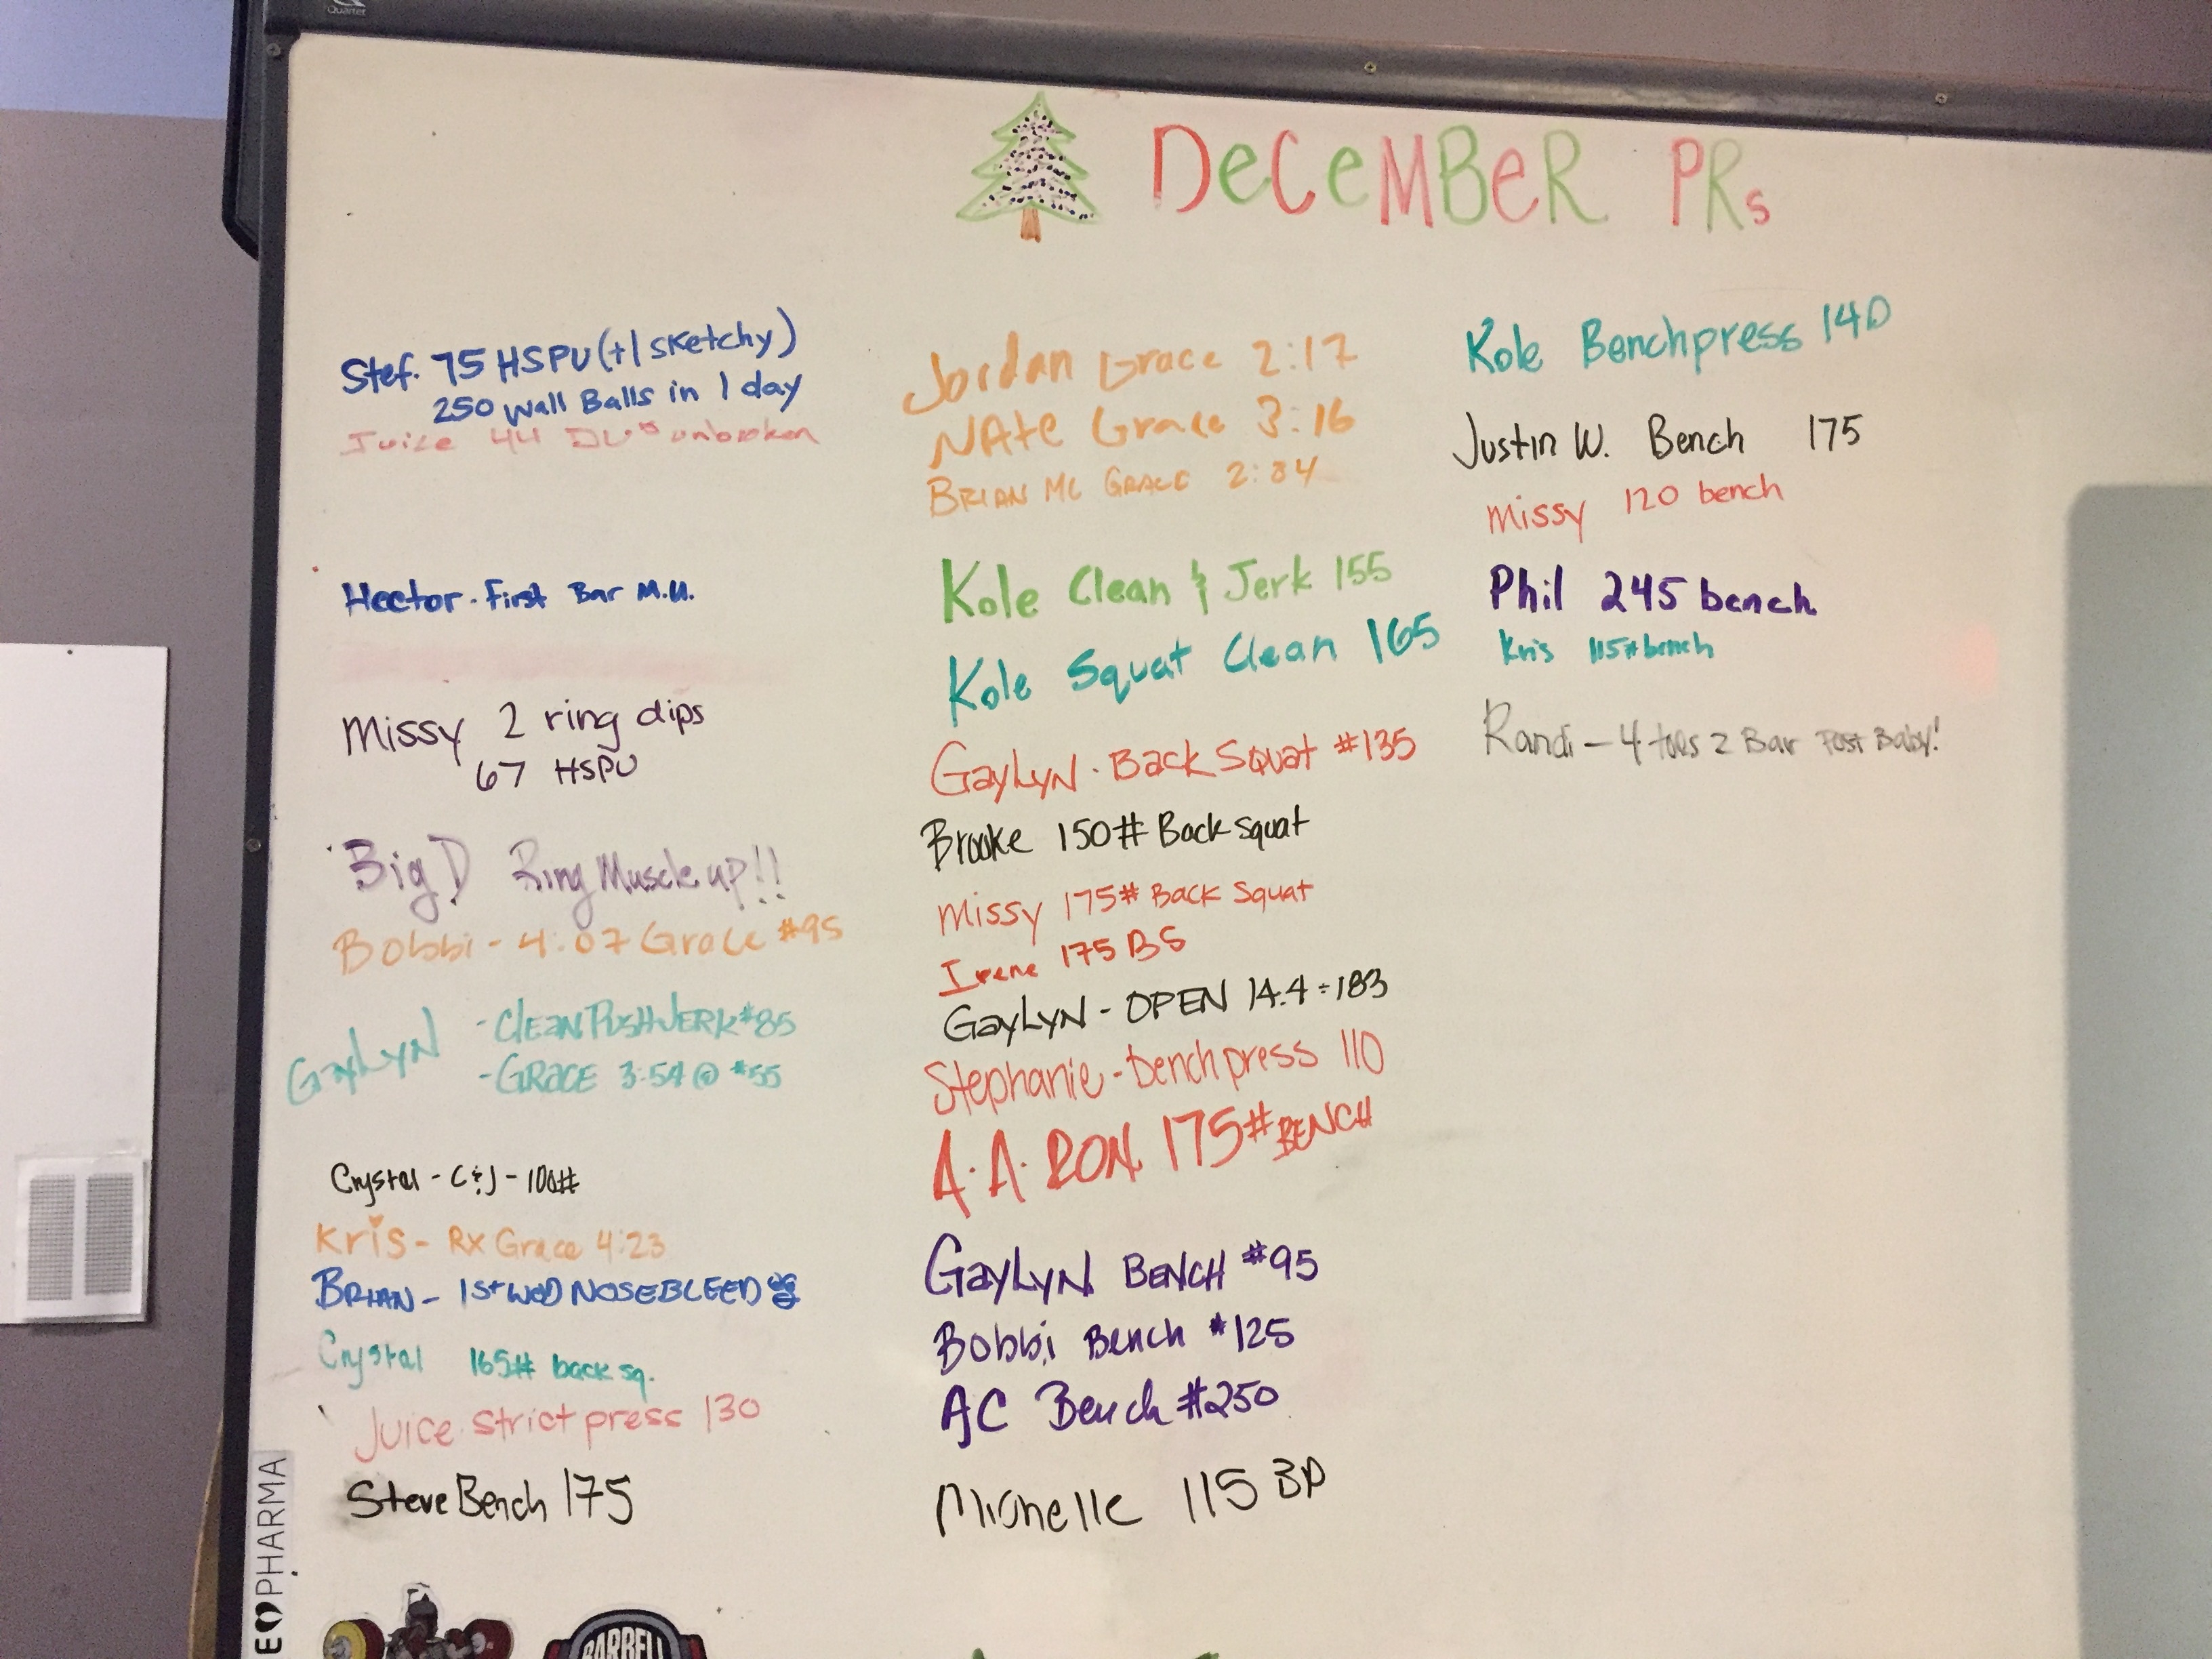 Quartet
DeCeMBeR PRs
Stef. 75 HSPU (+1 sketchy)
250 Wall Balls in 1 day
Juice 44 DU's unbroken
Hector - First Bar M.U.
Missy 2 ring dips
67 HSPU
Big D Ring Muscle up!!
Bobbi - 4:07 Grace #95
GayLyN - CLEAN PUSH JERK #85
- GRACE 3:54 @ #55
Crystal - C&J - 100#
Kris - Rx Grace 4:23
BRIAN - 1st WOD NOSEBLEED
Crystal 165# back sq.
Juice strict press 130
Steve Bench 175
Jordan Grace 2:17
NAte Grace 3:16
BRIAN MC GRACE 2:34
Kole Clean & Jerk 155
Kole Squat Clean 165
GayLyN - Back Squat #135
Brooke 150# Back squat
Missy 175# Back Squat
Irene 175 BS
GayLyN - OPEN 14.4 = 183
Stephanie - benchpress 110
A.A.RON. 175# BENCH
GayLyN BENCH #95
Bobbi Bench #125
AC Bench #250
Michelle 115 BP
Kole Benchpress 140
Justin W. Bench 175
Missy 120 bench
Phil 245 bench
Kris 115# bench
Randi - 4 toes 2 Bar Post Baby!
PHARMA
BARBELL